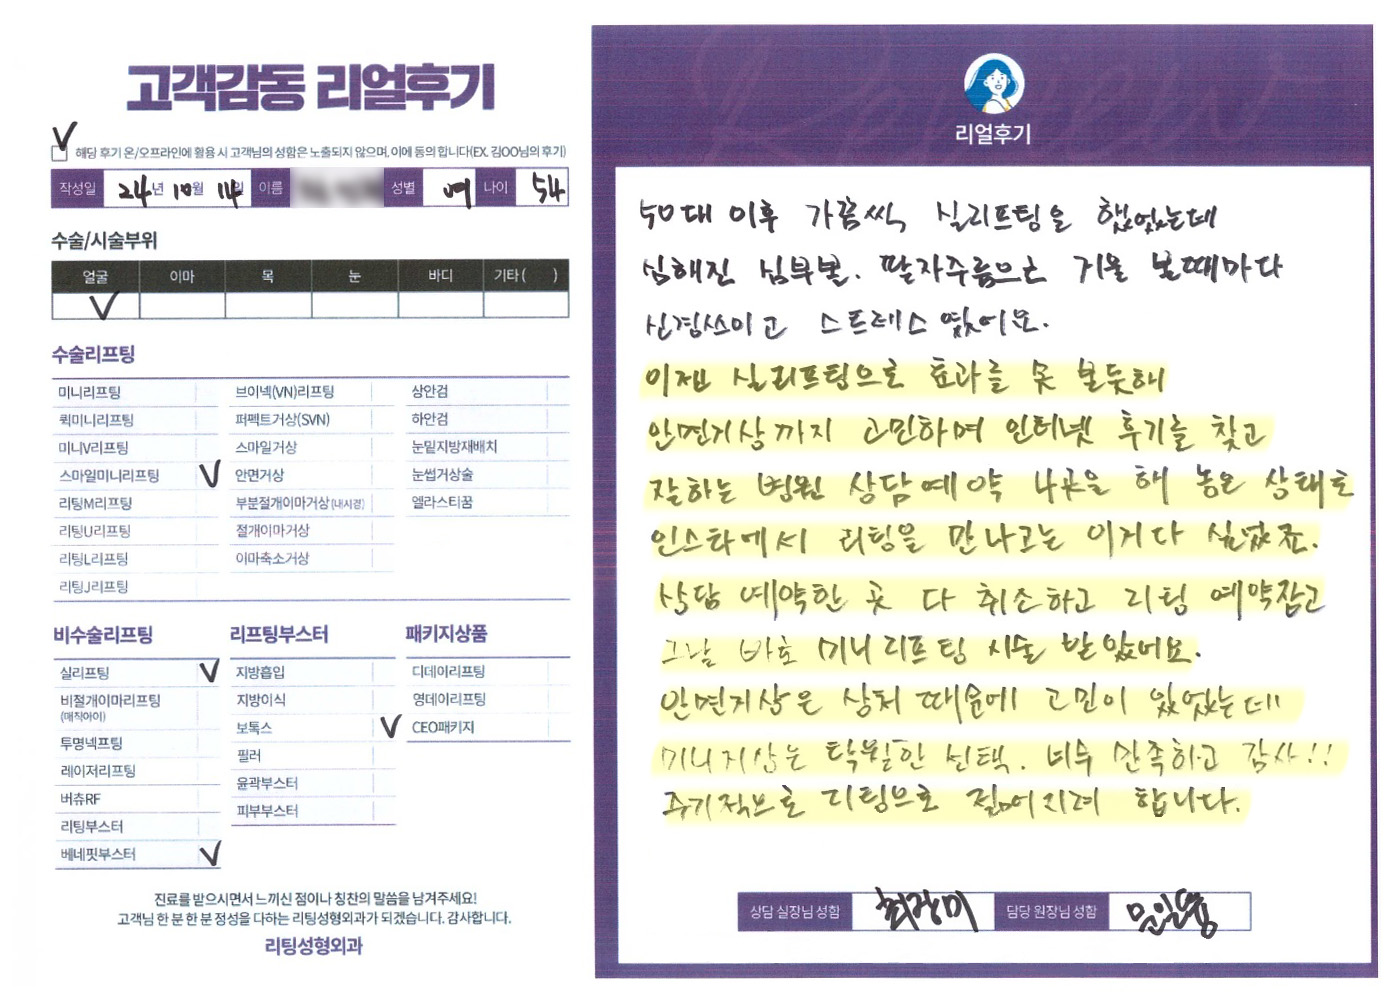 고객감동 리얼후기
해당 후기 온/오프라인에 활용 시 고객님의 성함은 노출되지 않으며, 이에 동의 합니다(EX. 김OO님의 후기)
작성일 24년 10월 14일 이름 성별 여 나이 54
수술/시술부위
얼굴 이마 목 눈 바디 기타 ( )
수술리프팅
미니리프팅 브이넥(VN)리프팅 상안검
퀵미니리프팅 퍼펙트거상(SVN) 하안검
미니V리프팅 스마일거상 눈밑지방재배치
스마일미니리프팅 안면거상 눈썹거상술
리팅M리프팅 부분절개이마거상(내시경) 엘라스티꿈
리팅U리프팅 절개이마거상
리팅L리프팅 이마축소거상
리팅J리프팅
비수술리프팅 리프팅부스터 패키지상품
실리프팅 지방흡입 디데이리프팅
비절개이마리프팅 지방이식 영데이리프팅
(매직아이)
보톡스 CEO패키지
투명넥프팅 필러
레이저리프팅 윤곽부스터
버츄RF 피부부스터
리팅부스터
베네핏부스터
진료를 받으시면서 느끼신 점이나 칭찬의 말씀을 남겨주세요!
고객님 한 분 한 분 정성을 다하는 리팅성형외과가 되겠습니다. 감사합니다.
리팅성형외과
리얼후기
50대 이후 가끔씩 실리프팅을 했었는데
심해진 심부볼. 팔자주름으로 거울 볼때마다
신경쓰이고 스트레스였어요.
이젠 실리프팅으로 효과를 못 볼듯해
안면거상까지 고민하며 인터넷 후기를 찾고
잘하는 병원 상담예약 4곳을 해 놓은 상태로
인스타에서 리팅을 만나고는 이거다 싶었죠.
상담 예약한 곳 다 취소하고 리팅 예약잡고
그날 바로 미니리프팅 시술 받았어요.
안면거상은 상처 때문에 고민이 있었는데
미니거상은 탁월한 선택. 너무 만족하고 감사!!
주기적으로 리팅으로 젊어지려 합니다.
상담 실장님 성함 최장미 담당 원장님 성함